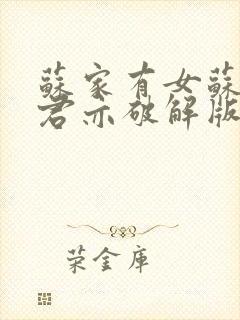 蘇家有女蘇
君亦破解版
荣金库